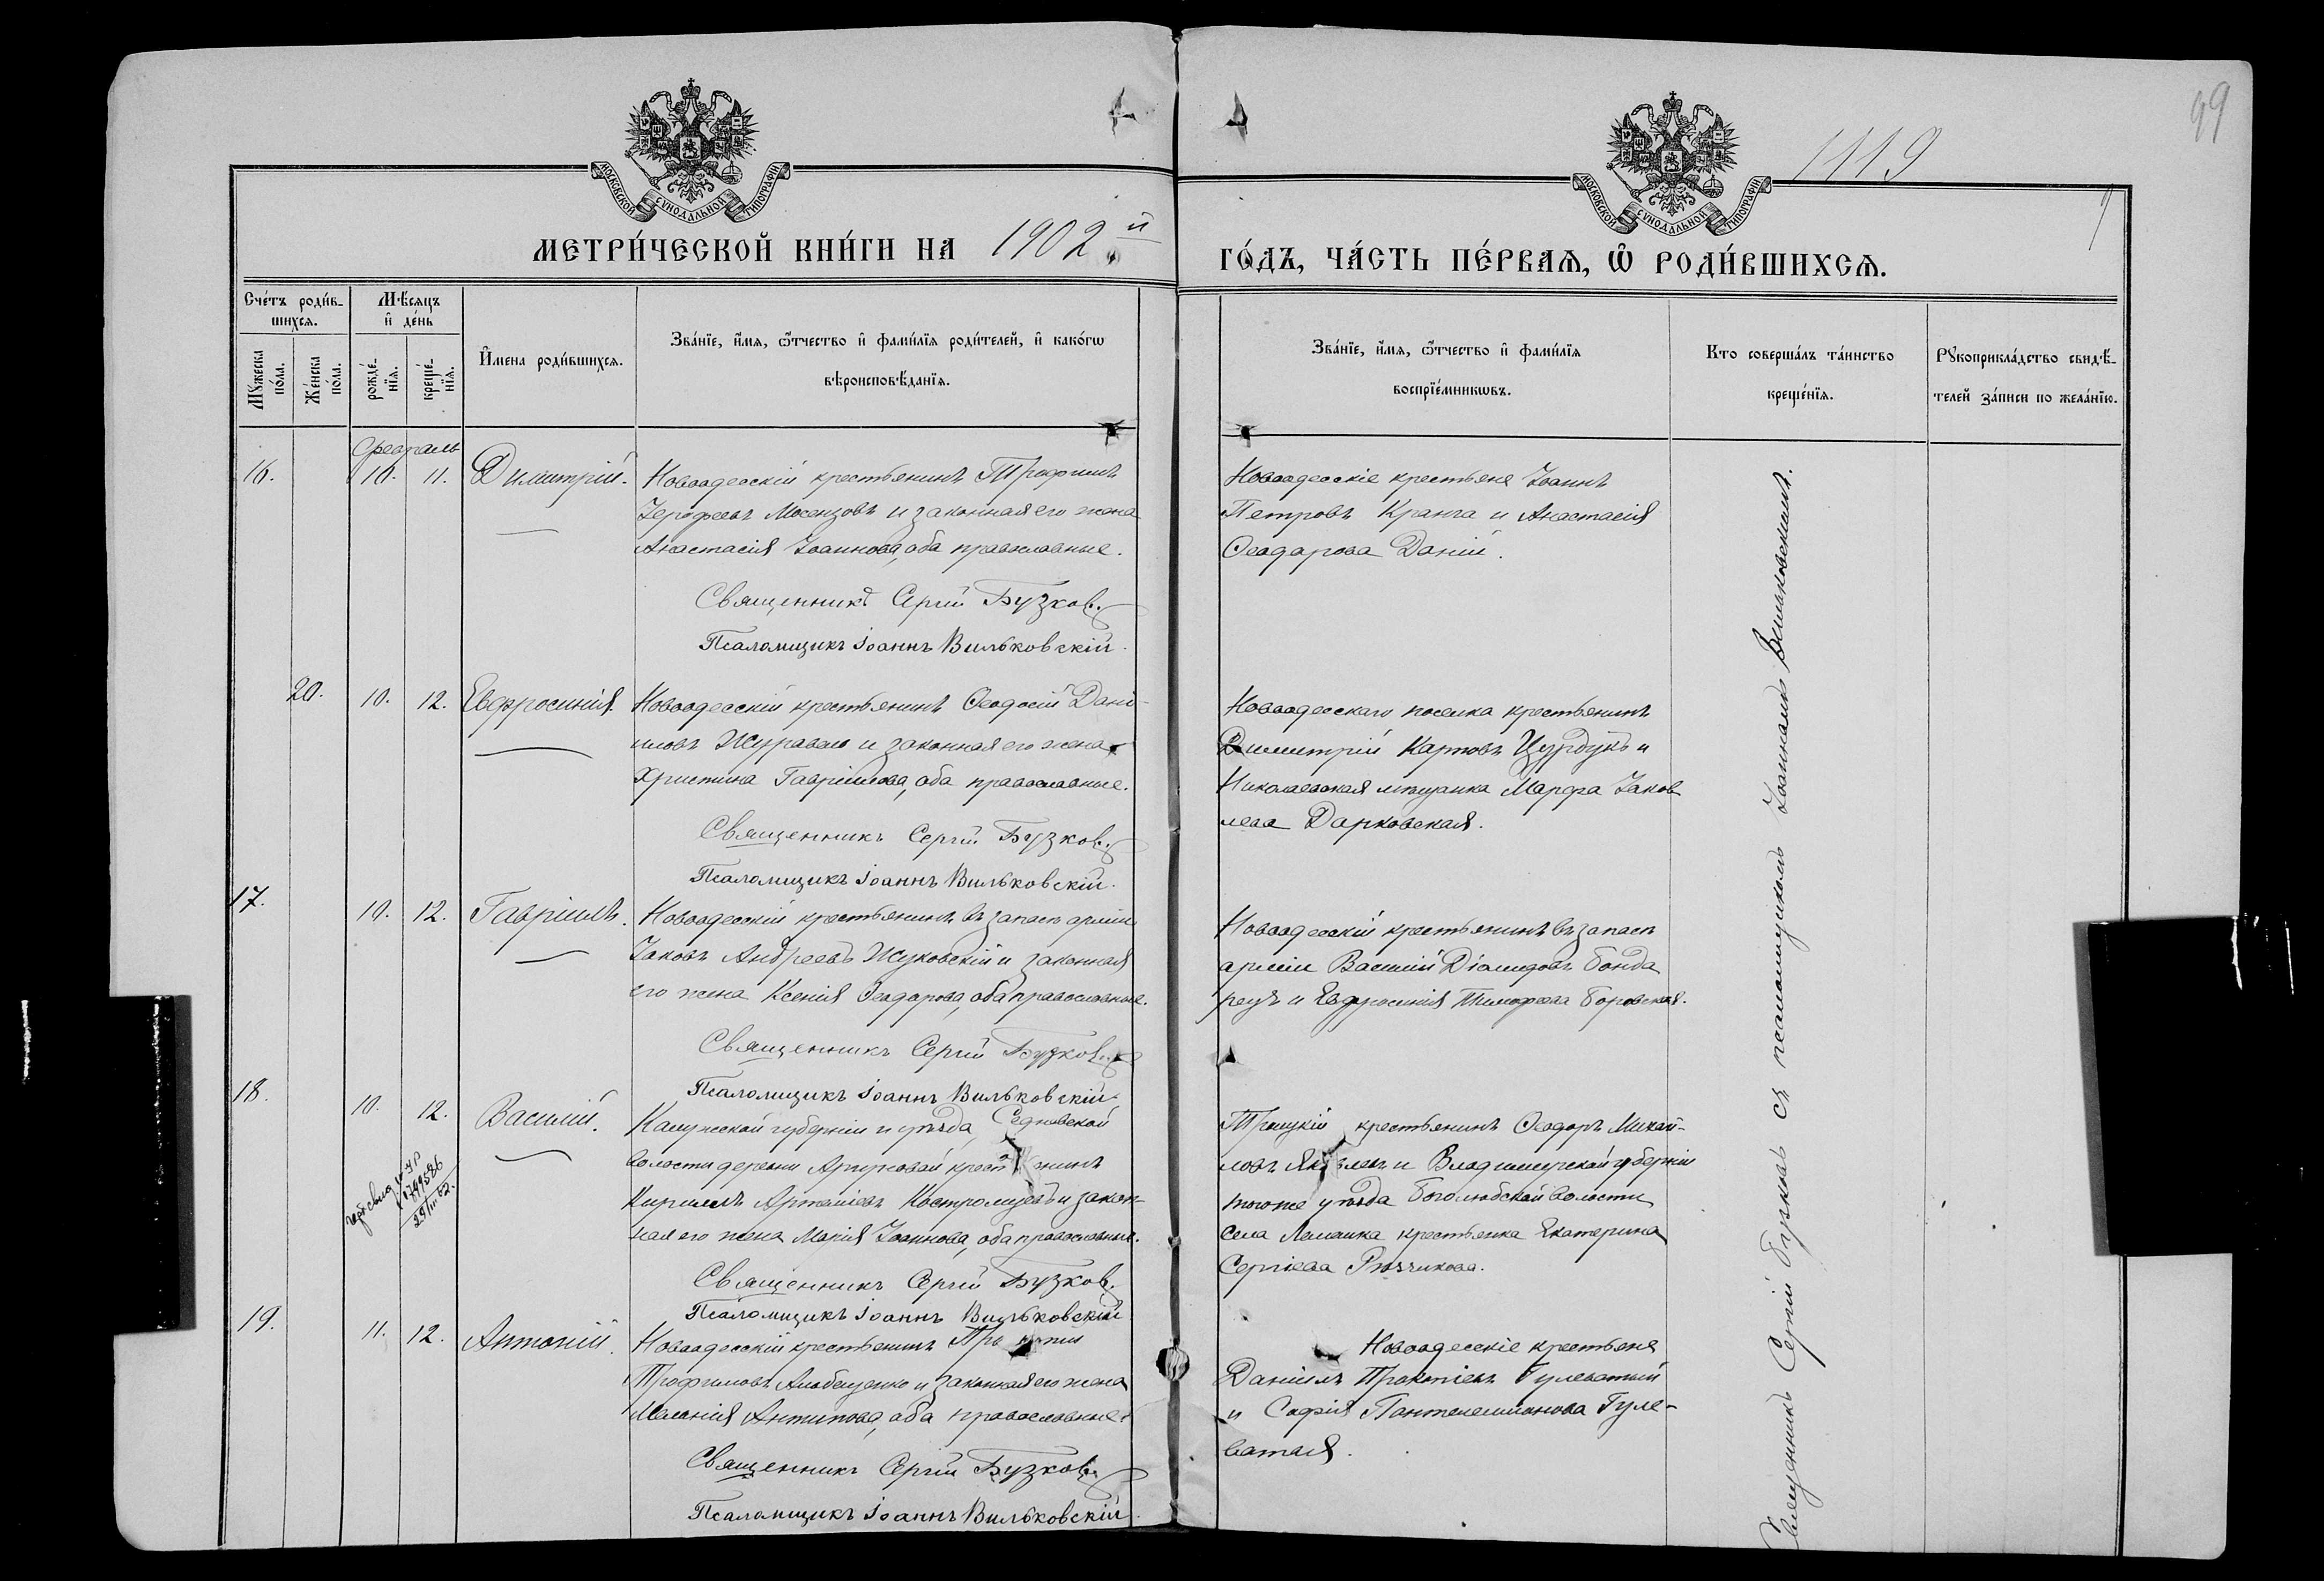 99
1119
7
МОСКОВСКОЙ СѴНОДАЛЬНОЙ ТИПОГРАФІИ
МОСКОВСКОЙ СѴНОДАЛЬНОЙ ТИПОГРАФІИ
МЕТРИ́ЧЕСКОЙ КНИ́ГИ НА 1902 й
ГО́ДЪ, ЧА́СТЬ ПЕ́РВАѦ, Ѡ҆ РОДИ́ВШИХСѦ.
Сче́тъ роди́в-
шихсѧ.
Мꙋ́жеска по́ла.
Же́нска по́ла.
Мѣ́сѧцъ и҆ де́нь
рожде́-
нїѧ.
креще́-
нїѧ.
И҆мена роди́вшихсѧ.
Зва́нїе, и҆́мѧ, ѻ҆́тчество и҆ фами́лїѧ роди́телей, и҆ како́гѡ
вѣроисповѣ́данїѧ.
Зва́нїе, и҆́мѧ, ѻ҆́тчество и҆ фами́лїѧ
воспрїе́мникѡвъ.
Кто соверша́лъ та́инство
креще́нїѧ.
Рꙋкоприкла́дство свидѣ́-
телей за́писи по жела́нїю.
Февраль
16. 10. 11. Димитрій.
Новоодесскій крестьянинъ Трофимъ
Іерофеевъ Мосензовъ и законная его жена
Анастасія Іоаннова, оба православные.
Священникъ Сергій Бузков.
Псаломщикъ Іоаннъ Вильковскій.
Новоодесскіе крестьяне Іоаннъ
Петровъ Кранга и Анастасія
Ѳеодорова Даній.
20. 10. 12. Евфросинія.
Новоодесскій крестьянинъ Ѳеодосій Дані-
иловъ Журавель и законная его жена
Христина Гавріилова, оба православные.
Священникъ Сергій Бузков.
Псаломщикъ Іоаннъ Вильковскій.
Новоодесскаго поселка крестьянинъ
Димитрій Карповъ Цурдукъ и
Николаевская мѣщанка Марфа Іаков
лева Дарковская.
17. 10. 12. Гавріилъ.
Новоодесскій крестьянинъ въ запасѣ арміи
Іаковъ Андреевъ Жуковскій и законная
его жена Ксенія Ѳеодорова, оба православные.
Священникъ Сергій Бузков.
Псаломщикъ Іоаннъ Вильковскій
Новоодесскій крестьянинъ въ запасѣ
арміи Василій Діомидовъ Бонда
рецъ и Евфросинія Тимофеева Боровская.
18. 10. 12. Василій.
29/III 62.
Калужской губерніи и уѣзда,
волости деревни крест нинъ
Кириллъ Артеміевъ Костромцевъ и закон-
ная его жена Марія Іоаннова, оба православные.
Священникъ Сергій Бузков.
Псаломщикъ Іоаннъ Вильковскій
Троицкій крестьянинъ Ѳеодоръ Михай-
ловъ Яковлевъ и Владимирской губерніи
того же уѣзда Боголюбской волости
села Лемешка крестьянка Екатерина
Сергіева
19. 11. 12. Антоній.
Новоодесскій крестьянинъ
Трофимовъ и законная его жена
Меланія Антипова, оба православные.
Священникъ Сергій Бузков.
Псаломщикъ Іоаннъ Вильковскій.
Новоодесскіе крестьяне
Даніилъ Прокопіевъ Гулеватый
и Софія Пантелеимонова Гуле-
ватая.
Священникъ Сергій Бузковъ съ псаломщикомъ Іоанномъ Вильковскимъ.